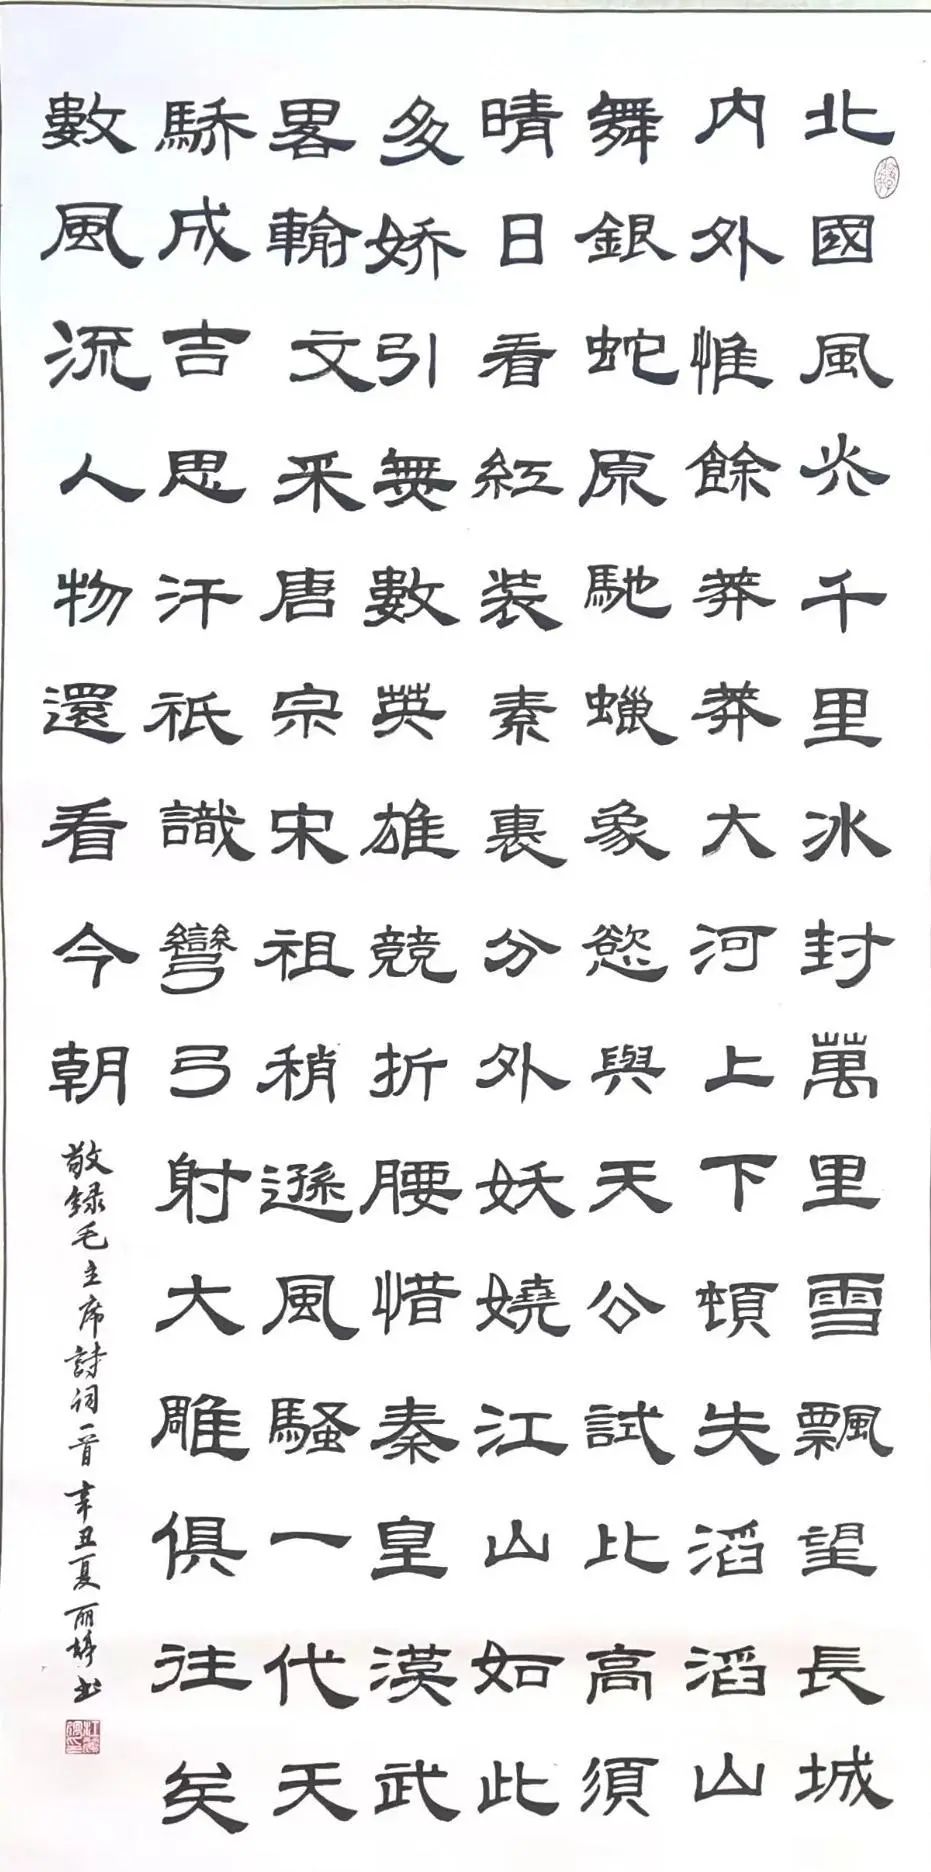 北國風光千里冰封萬里雪飄望長城
內外惟餘莽莽大河上下頓失滔滔山
舞銀蛇原馳蠟象慾與天公試比高須
晴日看紅裝素裹分外妖嬈江山如此
多嬌引無數英雄競折腰惜秦皇漢武
畧輸文采唐宗宋祖稍遜風騷一代天
驕成吉思汗祇識彎弓射大雕俱往矣
數風流人物還看今朝
敬録毛主席詩词一首辛丑夏丽婷书